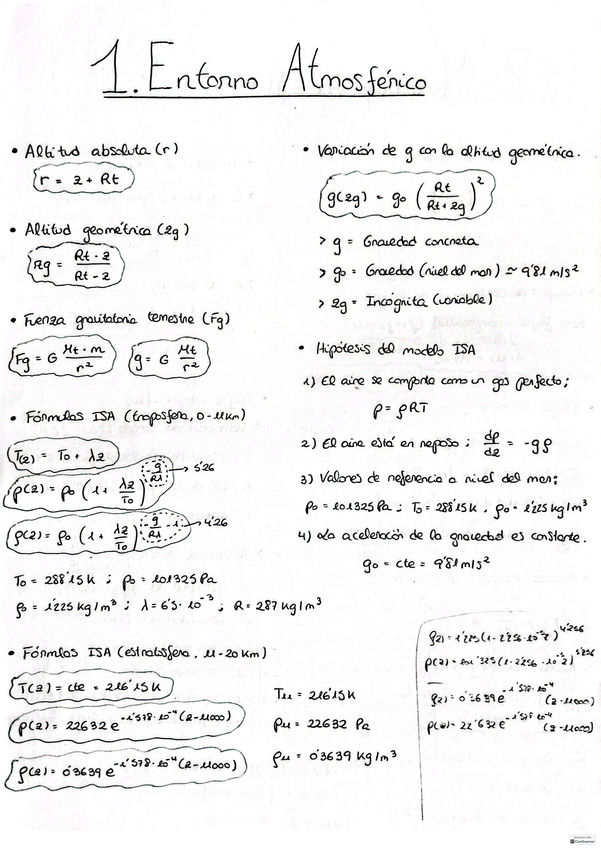 1. Entorno Atmosférico
• Altitud absoluta (r)
r = z + Rt
• Altitud geométrica (zg)
zg = Rt · z / Rt - z
• Fuerza gravitatoria terrestre (Fg)
Fg = G Mt · m / r²    g = G Mt / r²
• Fórmulas ISA (troposfera, 0-11km)
T(z) = T0 + λz
p(z) = p0 (1 + λz/T0)^(-g/Rλ) → 5'26
ρ(z) = ρ0 (1 + λz/T0)^(-g/Rλ - 1) → 4'26
T0 = 288'15 K ; p0 = 101325 Pa
ρ0 = 1'225 kg/m³ ; λ = 6'5 · 10⁻³ ; R = 287 kg/m³
• Fórmulas ISA (estratosfera, 11-20 km)
T(z) = cte = 216'15 K
p(z) = 22632 e^(-1'578·10⁻⁴ (z-11000))
ρ(z) = 0'3639 e^(-1'578·10⁻⁴ (z-11000))
T11 = 216'15 K
p11 = 22632 Pa
ρ11 = 0'3639 kg/m³
• Variación de g con la altitud geométrica.
g(zg) = g0 (Rt / Rt + zg)²
> g = Gravedad concreta
> g0 = Gravedad (nivel del mar) ≃ 9'81 m/s²
> zg = Incógnita (variable)
• Hipótesis del modelo ISA
1) El aire se comporta como un gas perfecto;
p = ρRT
2) El aire está en reposo ; dp/dz = -gρ
3) Valores de referencia a nivel del mar;
p0 = 101325 Pa ; T0 = 288'15 K ; ρ0 = 1'225 kg/m³
4) La aceleración de la gravedad es constante.
g0 = cte = 9'81 m/s²
ρ(z) = 1'225 (1 - 2'256 · 10⁻⁵ z)^4'256
p(z) = 101'325 (1 - 2'256 · 10⁻⁵ z)^5'256
ρ(z) = 0'3639 e^(-1'578·10⁻⁴ (z-11000))
p(z) = 22'632 e^(-1'578·10⁻⁴ (z-11000))
CamScanner